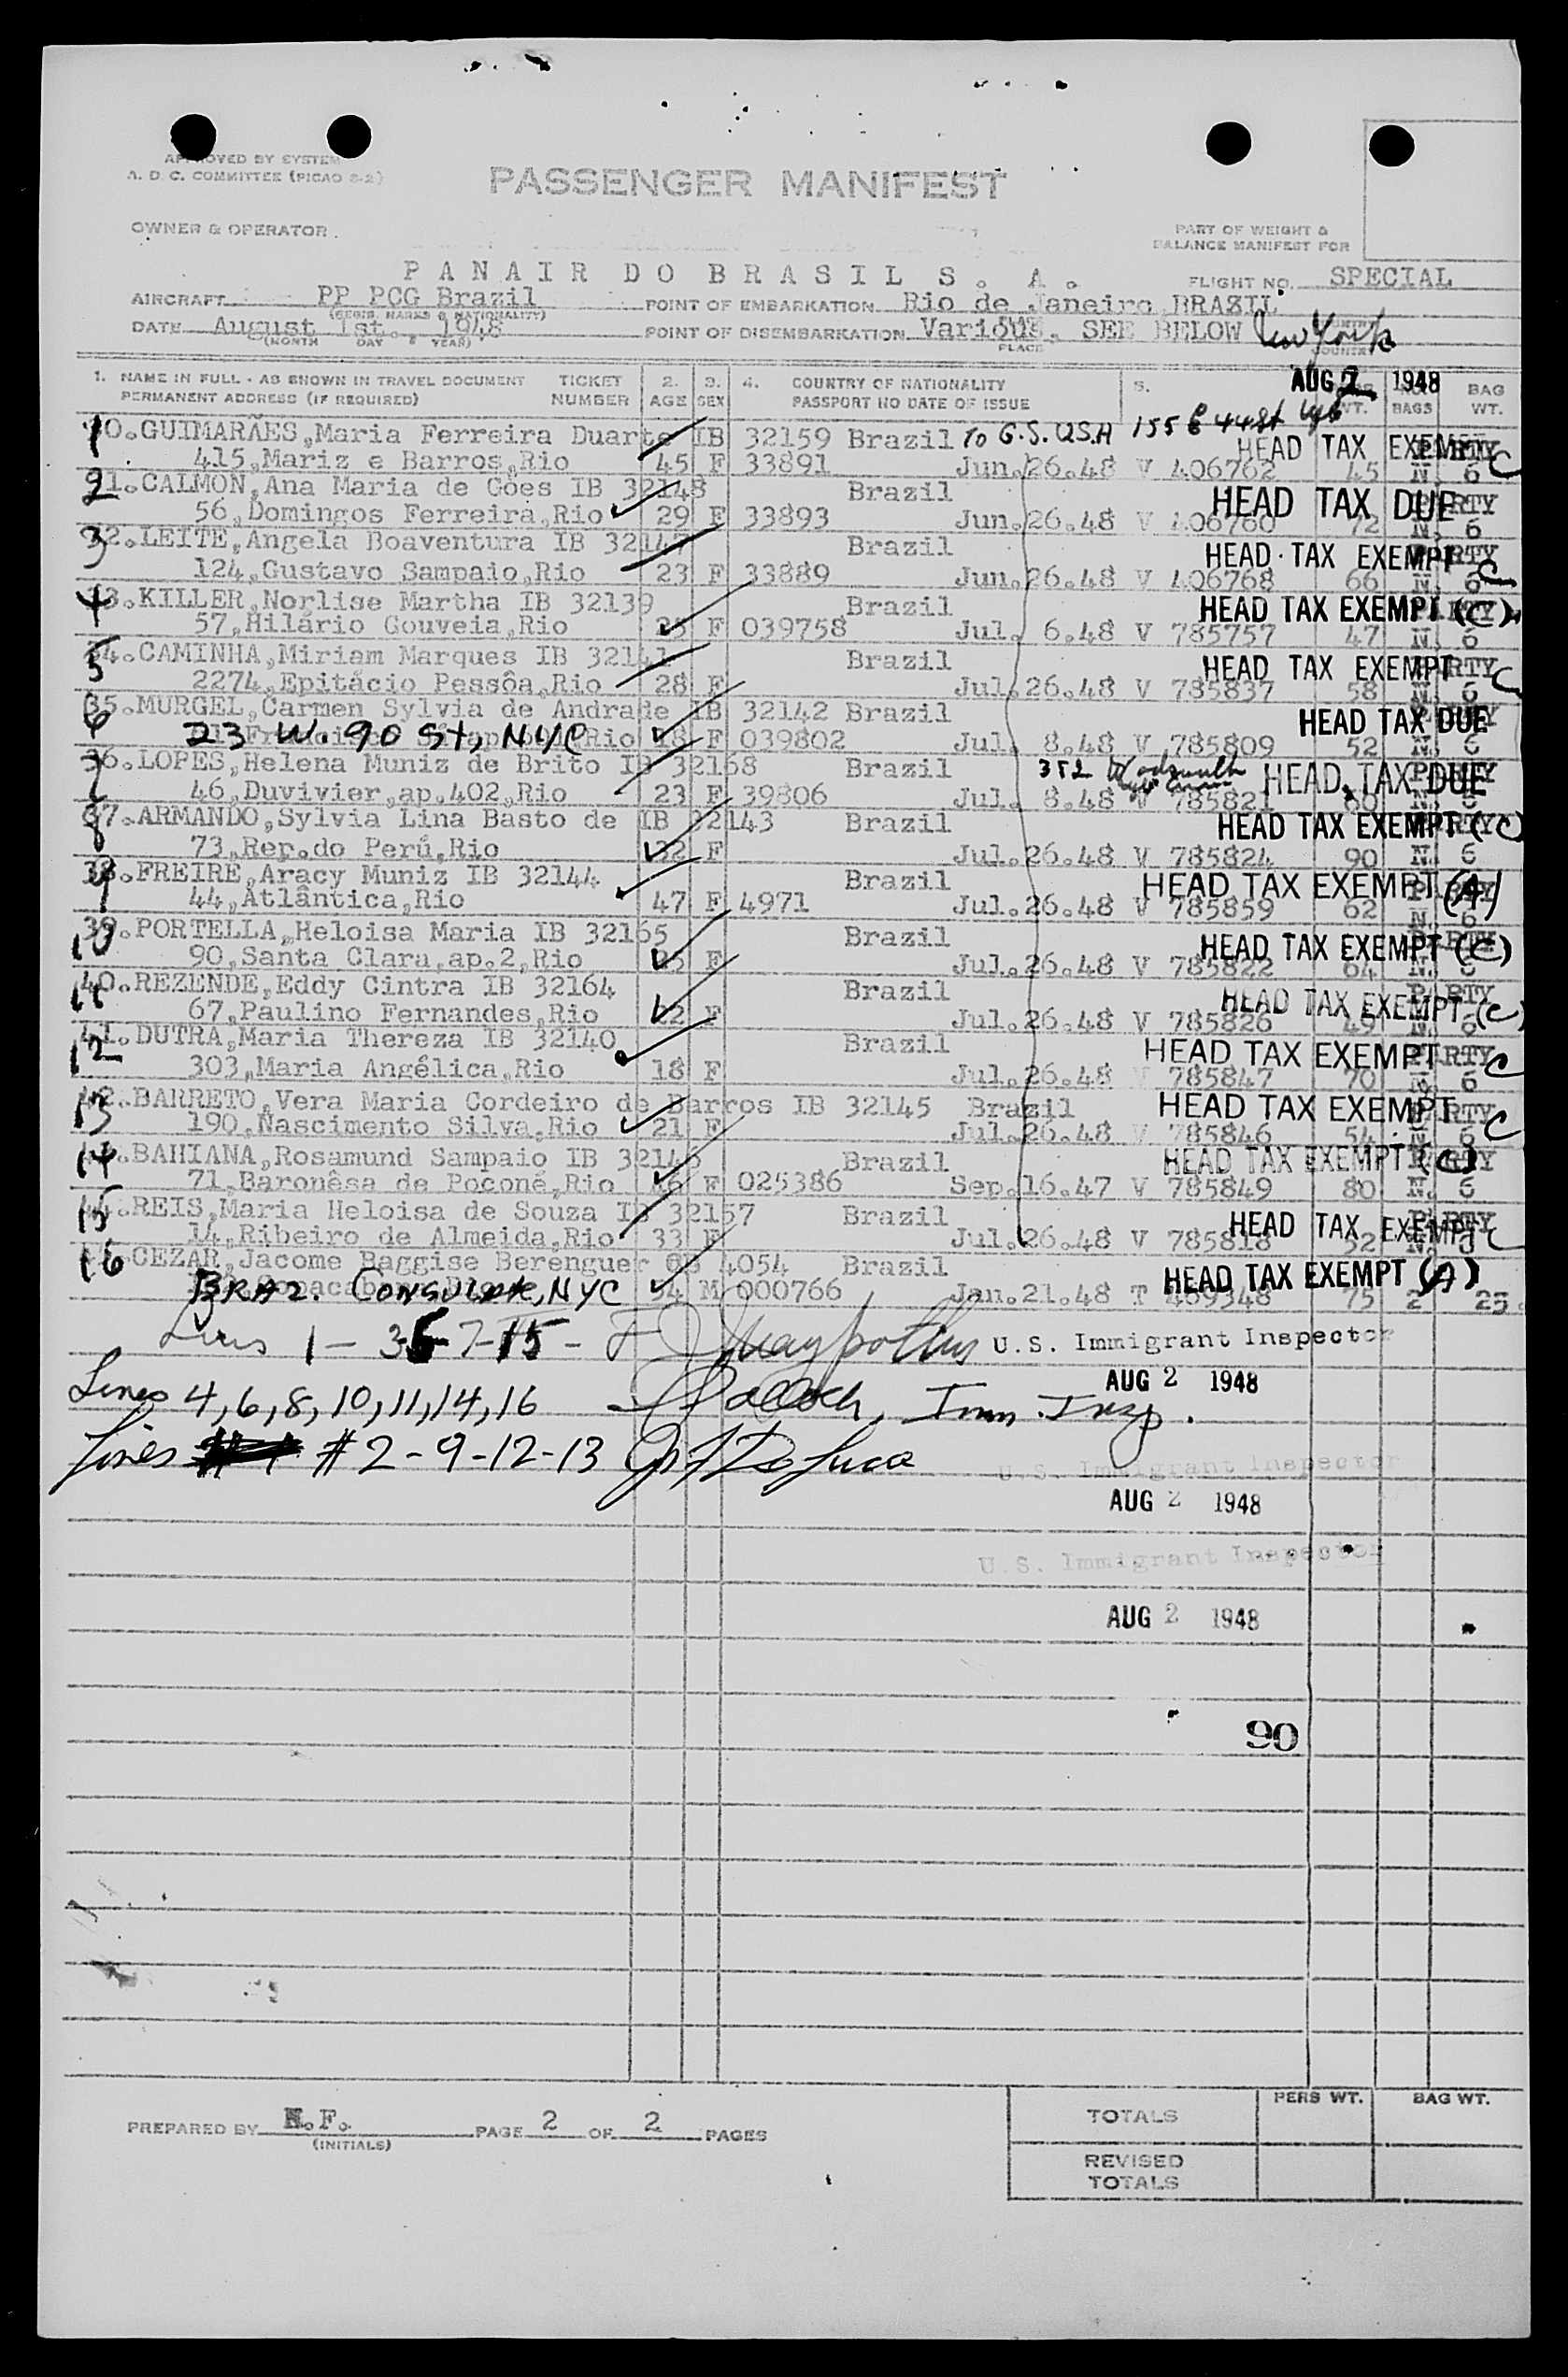 APPROVED BY SYSTEM
A. D. C. COMMITTEE (PICAO 2-2)
PASSENGER MANIFEST
OWNER & OPERATOR
PART OF WEIGHT &
BALANCE MANIFEST FOR
PANAIR DO BRASIL S. A.
FLIGHT NO. SPECIAL
AIRCRAFT PP PCG Brazil POINT OF EMBARKATION Rio de Janeiro BRAZIL
(REGIS. MARKS & NATIONALITY)
DATE August 1st., 1948 POINT OF DISEMBARKATION Various, SEE BELOW New York
(MONTH DAY & YEAR) PLACE COUNTRY
1. NAME IN FULL - AS SHOWN IN TRAVEL DOCUMENT TICKET 2. 3. 4. COUNTRY OF NATIONALITY 5. AUG 2 1948 BAG
PERMANENT ADDRESS (IF REQUIRED) NUMBER AGE SEX PASSPORT NO DATE OF ISSUE WT. BAGS WT.
1 GUIMARÃES, Maria Ferreira Duarte IB 32159 Brazil To G.S. USA 155 E 44 St HEAD TAX EXEMPT C
415, Mariz e Barros, Rio 45 F 33891 Jun. 26.48 V 406762 45 N. 6
2 CALMON, Ana Maria de Góes IB 32148 Brazil HEAD TAX DUE
56, Domingos Ferreira, Rio 29 F 33893 Jun. 26.48 V 406760 72 N. 6
3 LEITE, Angela Boaventura IB 32147 Brazil HEAD TAX EXEMPT C
124, Gustavo Sampaio, Rio 23 F 33889 Jun. 26.48 V 406768 66 N. 6
4 KILLER, Norlise Martha IB 32139 Brazil HEAD TAX EXEMPT (C)
57, Hilário Gouveia, Rio F 039758 Jul. 6.48 V 785757 47 N. 6
5 CAMINHA, Miriam Marques IB 32141 Brazil HEAD TAX EXEMPT C
2274, Epitácio Pessôa, Rio 28 F Jul. 26.48 V 785837 58 N. 6
6 35. MURGEL, Carmen Sylvia de Andrade IB 32142 Brazil HEAD TAX DUE
23 W. 90 St, NYC Rio 18 F 039802 Jul. 8.48 V 785809 52 N. 6
7 36. LOPES, Helena Muniz de Brito IB 32168 Brazil 352 HEAD TAX DUE
46, Duvivier, ap. 402, Rio 23 F 39806 Jul. 8.48 V 785821 60 N. 6
8 37. ARMANDO, Sylvia Lina Basto de IB 32143 Brazil HEAD TAX EXEMPT (C)
73, Rep. do Perú, Rio 32 F Jul. 26.48 V 785824 90 N. 6
9 38. FREIRE, Aracy Muniz IB 32144 Brazil HEAD TAX EXEMPT (A)
44, Atlântica, Rio 47 F 4971 Jul. 26.48 V 785859 62 N. 6
10 39. PORTELLA, Heloisa Maria IB 32165 Brazil HEAD TAX EXEMPT (C)
90, Santa Clara, ap. 2, Rio F Jul. 26.48 V 785822 64 N. 6
11 40. REZENDE, Eddy Cintra IB 32164 Brazil HEAD TAX EXEMPT (C)
67, Paulino Fernandes, Rio 22 F Jul. 26.48 V 785826 49 N. 6
12 41. DUTRA, Maria Thereza IB 32140 Brazil HEAD TAX EXEMPT C
303, Maria Angélica, Rio 18 F Jul. 26.48 V 785847 70 N. 6
13 42. BARRETO, Vera Maria Cordeiro de Barros IB 32145 Brazil HEAD TAX EXEMPT C
190, Nascimento Silva, Rio 21 F Jul. 26.48 V 785846 54 N. 6
14 BAHIANA, Rosamund Sampaio IB 32146 Brazil HEAD TAX EXEMPT (C)
71, Baronêsa de Poconé, Rio F 025386 Sep. 16.47 V 785849 80 N. 6
15 REIS, Maria Heloisa de Souza IB 32157 Brazil HEAD TAX EXEMPT C
14, Ribeiro de Almeida, Rio 33 F Jul. 26.48 V 785818 52 N.
16 CEZAR, Jacome Baggise Berenguer 4054 Brazil HEAD TAX EXEMPT (A)
BRAZ. CONSULATE, NYC 34 M 000766 Jan. 21.48 T 469348 75 2 25
Lines 1 - 35-7-15 - U.S. Immigrant Inspector
AUG 2 1948
Lines 4, 6, 8, 10, 11, 14, 16 Imm. Insp.
Lines #2-9-12-13 De Luca
U.S. Immigrant Inspector
AUG 2 1948
U.S. Immigrant Inspector
AUG 2 1948
90
PREPARED BY N.F. PAGE 2 OF 2 PAGES
(INITIALS)
PERS WT. BAG WT.
TOTALS
REVISED
TOTALS